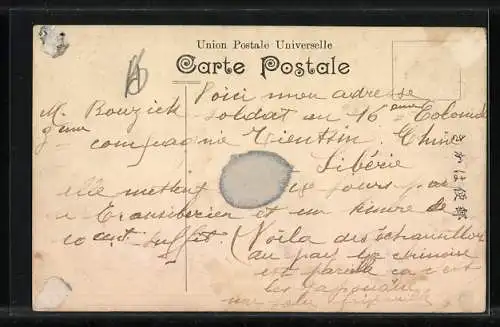 Union Postale Universelle
Carte Postale
Voici mon adresse
M. Bouzick soldat au 16eme Colonial
9eme compagnie Tientsin Chine
Sibérie
elle mettent 18 jours par
Transiberien et un timbre de
10 cent suffit. (Voila des échantillon
au pays la chinoise
est pareille ca c'est
les Japonaise
きかは便郵